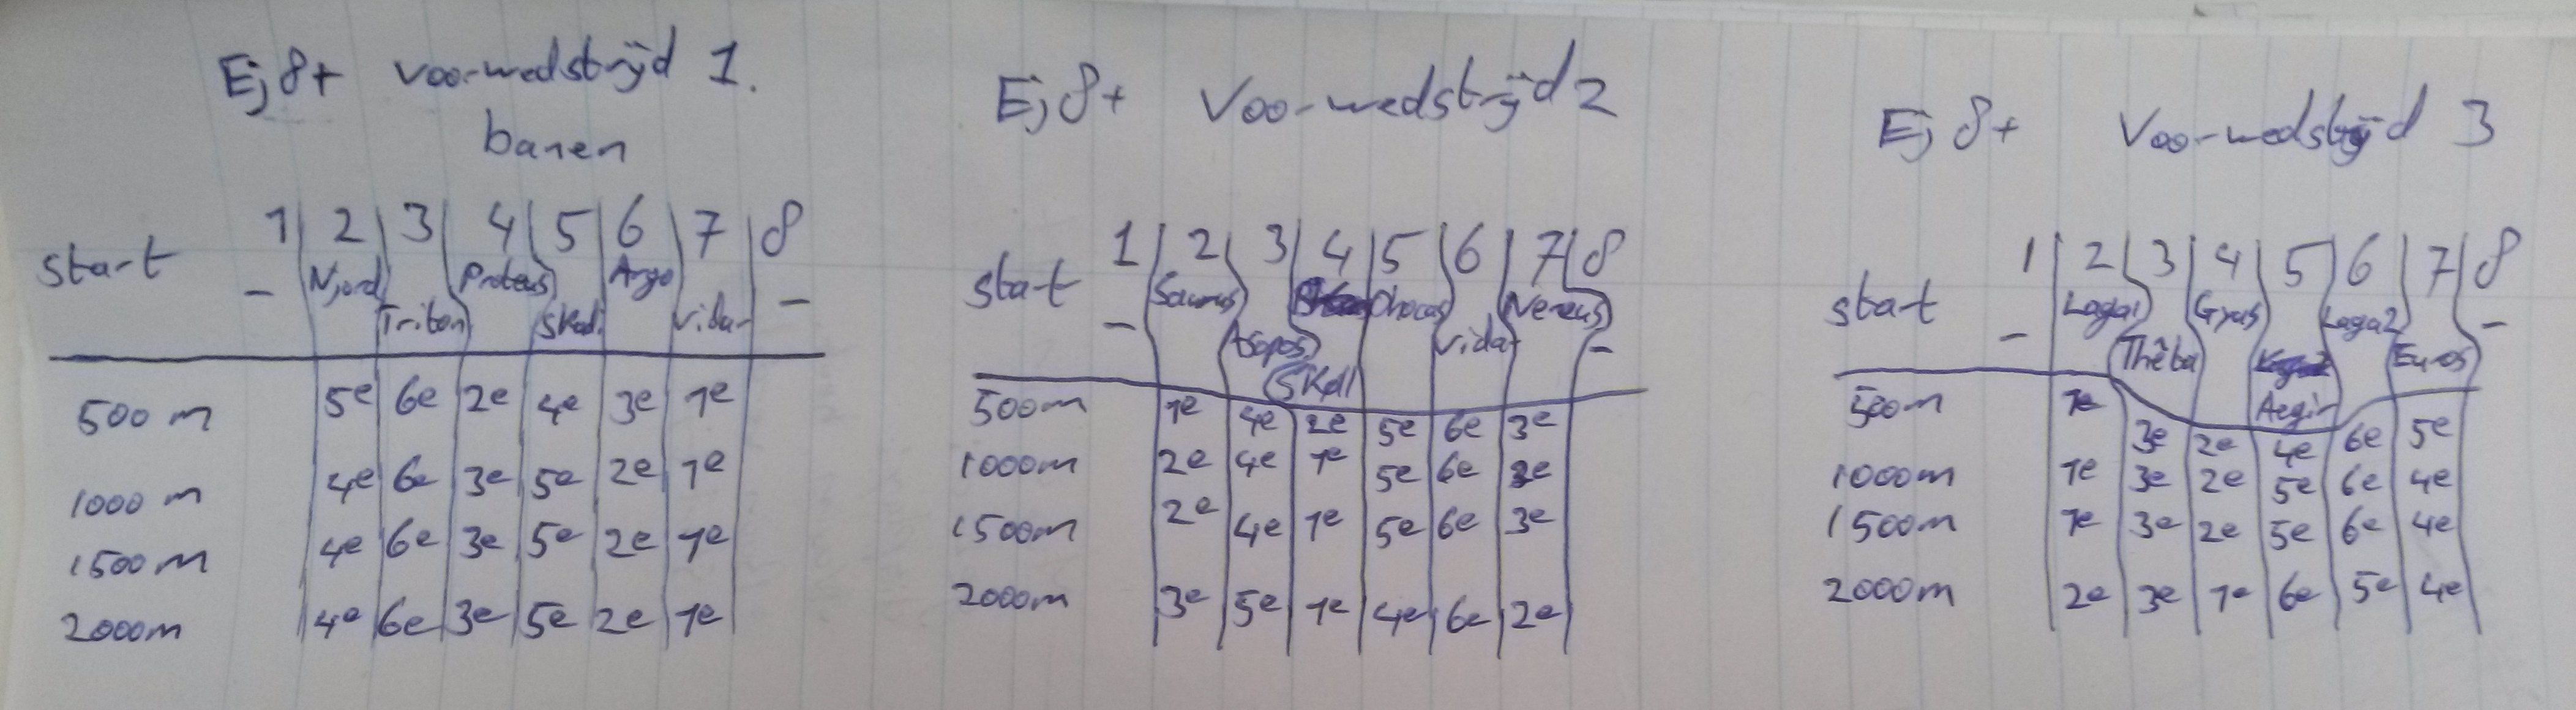 Ej 8+ Voorwedstrijd 1.
banen
1 2 3 4 5 6 7 8
start - Njord Triton Proteus Skadi Argo Vidar -
500 m 5e 6e 2e 4e 3e 1e
1000 m 4e 6e 3e 5e 2e 1e
1500 m 4e 6e 3e 5e 2e 1e
2000m 4e 6e 3e 5e 2e 1e
Ej 8+ Voorwedstrijd 2
1 2 3 4 5 6 7 8
start - Saurus Asopos Skøll Phocas Vidar Nereus -
500m 1e 4e 2e 5e 6e 3e
1000m 2e 4e 1e 5e 6e 3e
1500m 2e 4e 1e 5e 6e 3e
2000m 3e 5e 1e 4e 6e 2e
Ej 8+ Voorwedstrijd 3
1 2 3 4 5 6 7 8
start - Laga1 Thêta Gyas Aegir Laga2 Euros -
500m 1e 3e 2e 4e 6e 5e
1000m 1e 3e 2e 5e 6e 4e
1500m 1e 3e 2e 5e 6e 4e
2000m 2e 3e 1e 6e 5e 4e